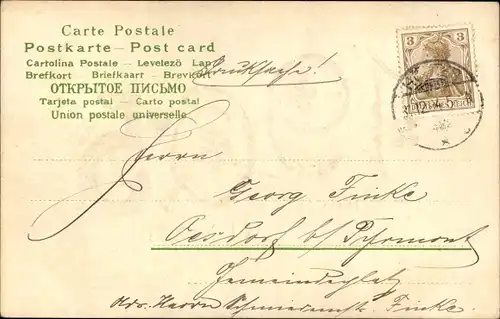 Carte Postale
Postkarte – Post card
Cartolina Postale – Levelező Lap
Brefkort Briefkaart – Brevkort
ОТКРЫТОЕ ПИСЬМО
Tarjeta postal – Carto postal
Union postale universelle
Drucksache!
3 3
Herrn
Georg Finke
Oesdorf b/ Pyrmont
Gemeindeplatz
Adr. Herrn Schmiedemstr. Finke.